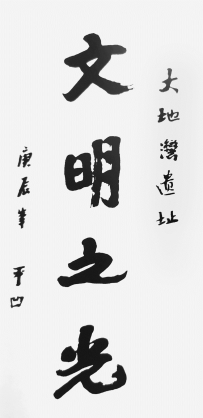 大地湾遗址
文明之光
庚辰年 平凹